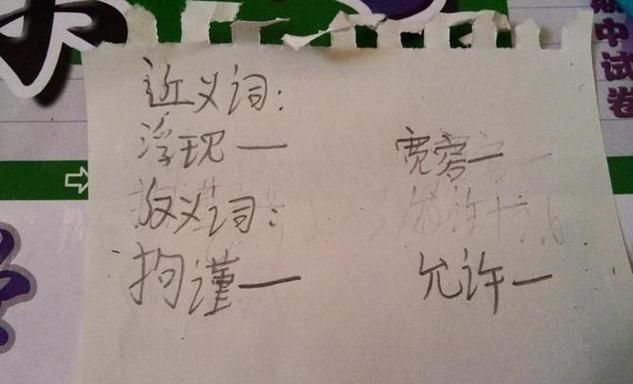 近义词:
浮现— 宽旁—
反义词:
拘谨— 允许—
中试卷